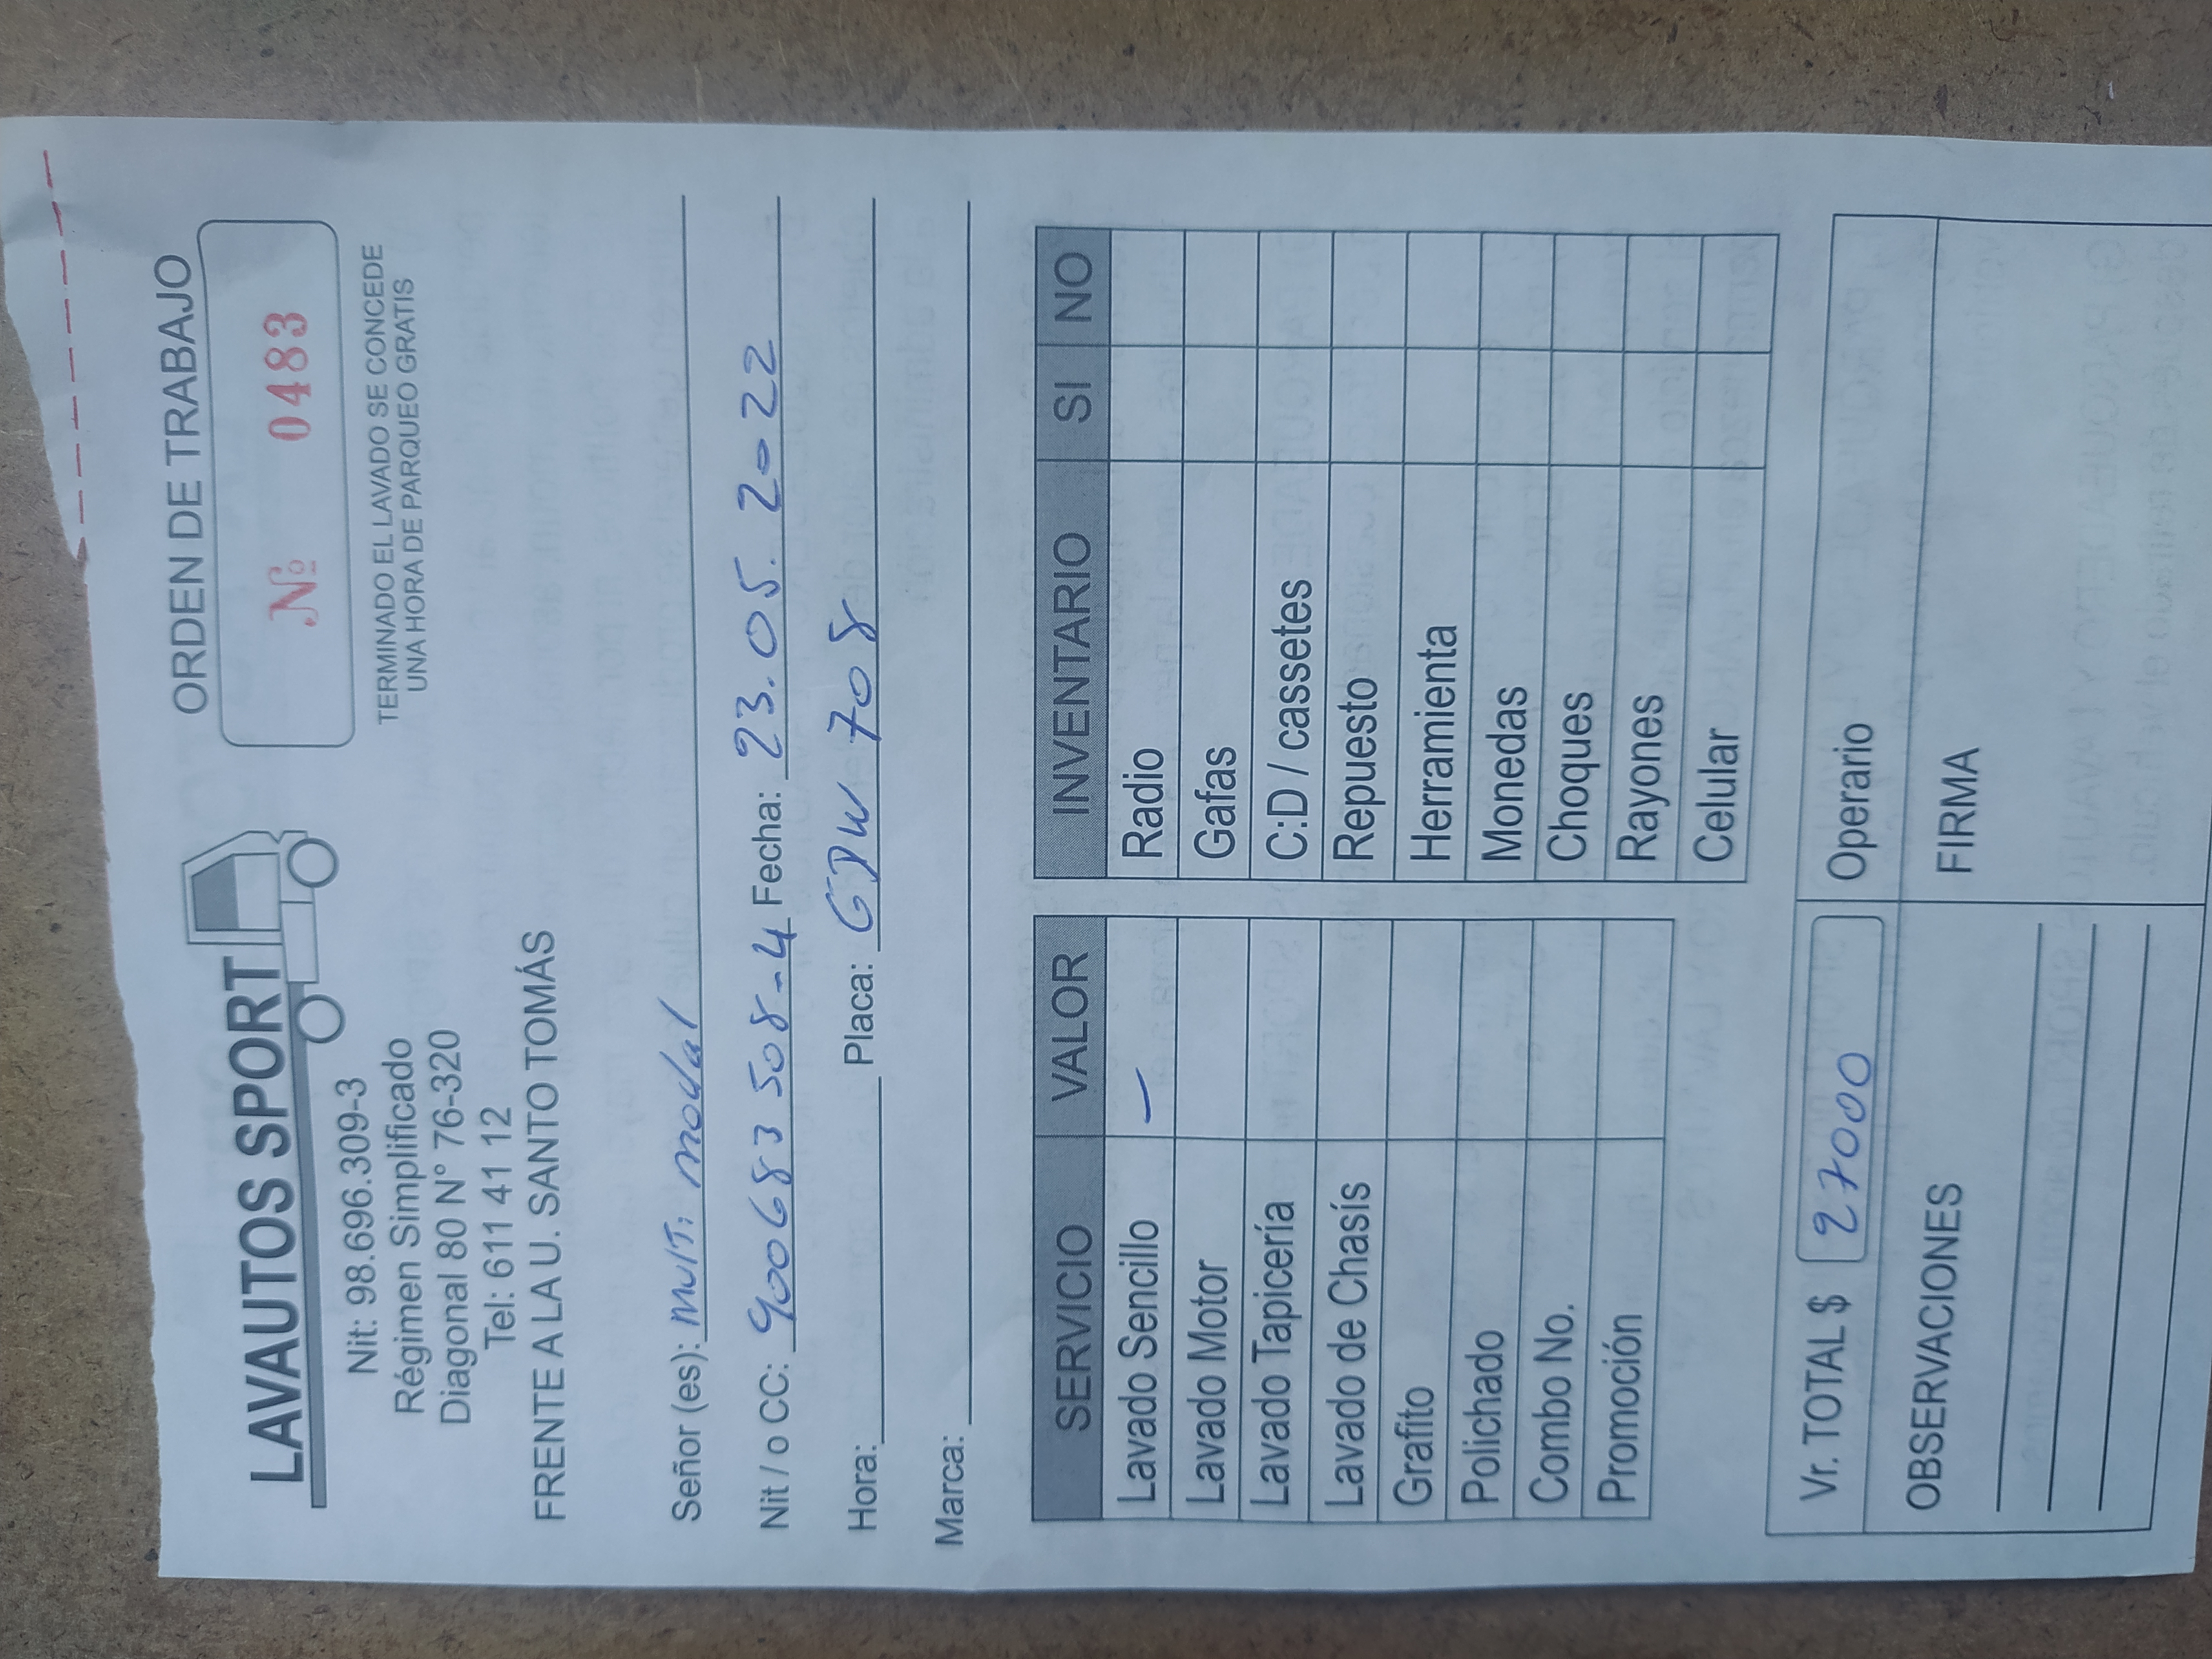 LAVAUTOS SPORT
Nit: 98.696.309-3
Régimen Simplificado
Diagonal 80 N° 76-320
Tel: 611 41 12
FRENTE A LA U. SANTO TOMÁS
ORDEN DE TRABAJO
Nº 0483
TERMINADO EL LAVADO SE CONCEDE
UNA HORA DE PARQUEO GRATIS
Señor (es): Multi modal
Nit / o CC: 900683508-4 Fecha: 23.05.2022
Hora: Placa: GDW 708
Marca:
SERVICIO VALOR
Lavado Sencillo —
Lavado Motor
Lavado Tapicería
Lavado de Chasís
Grafito
Polichado
Combo No.
Promoción
INVENTARIO SI NO
Radio
Gafas
C:D / cassetes
Repuesto
Herramienta
Monedas
Choques
Rayones
Celular
Vr. TOTAL $ 27000
Operario
OBSERVACIONES
FIRMA